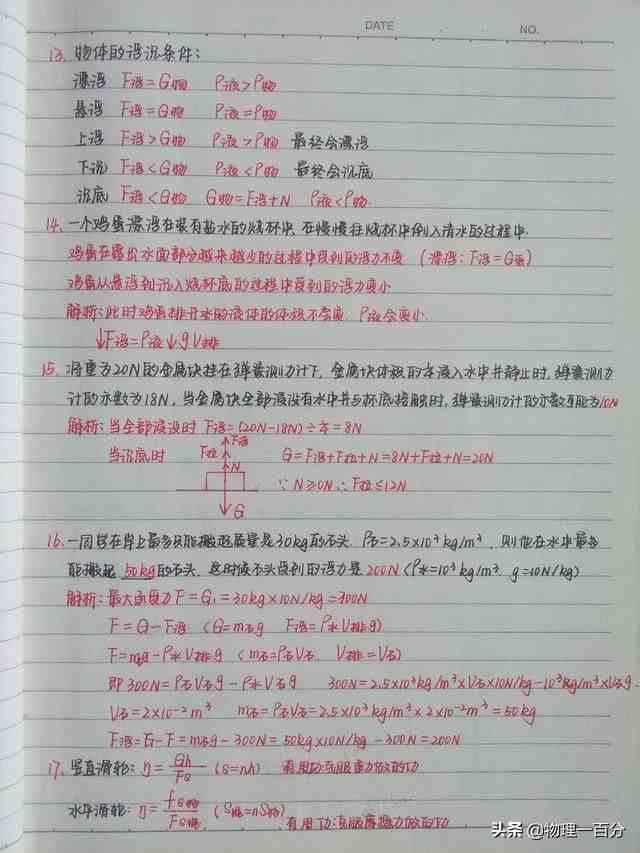 DATE NO.
13. 物体的浮沉条件:
漂浮 F浮=G物 ρ液>ρ物
悬浮 F浮=G物 ρ液=ρ物
上浮 F浮>G物 ρ液>ρ物 最终会漂浮
下沉 F浮<G物 ρ液<ρ物 最终会沉底
沉底 F浮<G物 G物=F浮+N ρ液<ρ物
14. 一个鸡蛋漂浮在装有盐水的烧杯中,在慢慢往烧杯中倒入清水的过程中.
鸡蛋在露出水面部分越来越少的过程中受到的浮力不变 (漂浮:F浮=G蛋)
鸡蛋从悬浮到沉入烧杯底的过程中受到的浮力变小
解析:此时鸡蛋排开水的液体的体积不变 ρ液会变小.
↓F浮=ρ液↓gV排
15. 将重为20N的金属块挂在弹簧测力计下,金属块体积的 浸入水中并静止时,弹簧测力
计的示数为18N,当金属块全部浸没有水中并与杯底接触时,弹簧测力计的示数可能为10N
解析:当全部浸没时 F浮=(20N-18N)÷ =8N
F浮
当沉底时 F拉 G=F浮+F拉+N=8N+F拉+N=20N
N
∵N≥0N ∴F拉≤12N
G
16. 一同学在岸上最多只能搬起质量是30kg的石头. ρ石=2.5×10³kg/m³,则他在水中最多
能搬起 50kg的石头,这时候石头受到的浮力是200N(ρ水=10³kg/m³ g=10N/kg)
解析:最大 力F=G₁=30kg×10N/kg=300N
F=G-F浮 (G=m石g F浮=ρ水V排g)
F=m石g-ρ水V排g (m石=ρ石V石 V排=V石)
即300N=ρ石V石g-ρ水V石g 300N=2.5×10³kg/m³×V石×10N/kg-10³kg/m³×V石g
V石=2×10⁻²m³ m石=ρ石V石=2.5×10³kg/m³×2×10⁻²m³=50kg
F浮=G-F=m石g-300N=50kg×10N/kg-300N=200N
17. 竖直滑轮:η=Gh/Fs (s=nh) 有用功克服重力做的功
水平滑轮:η=fs物/Fs绳 (s绳=ns物) 有用功克服摩擦力做的功
头条@物理一百分